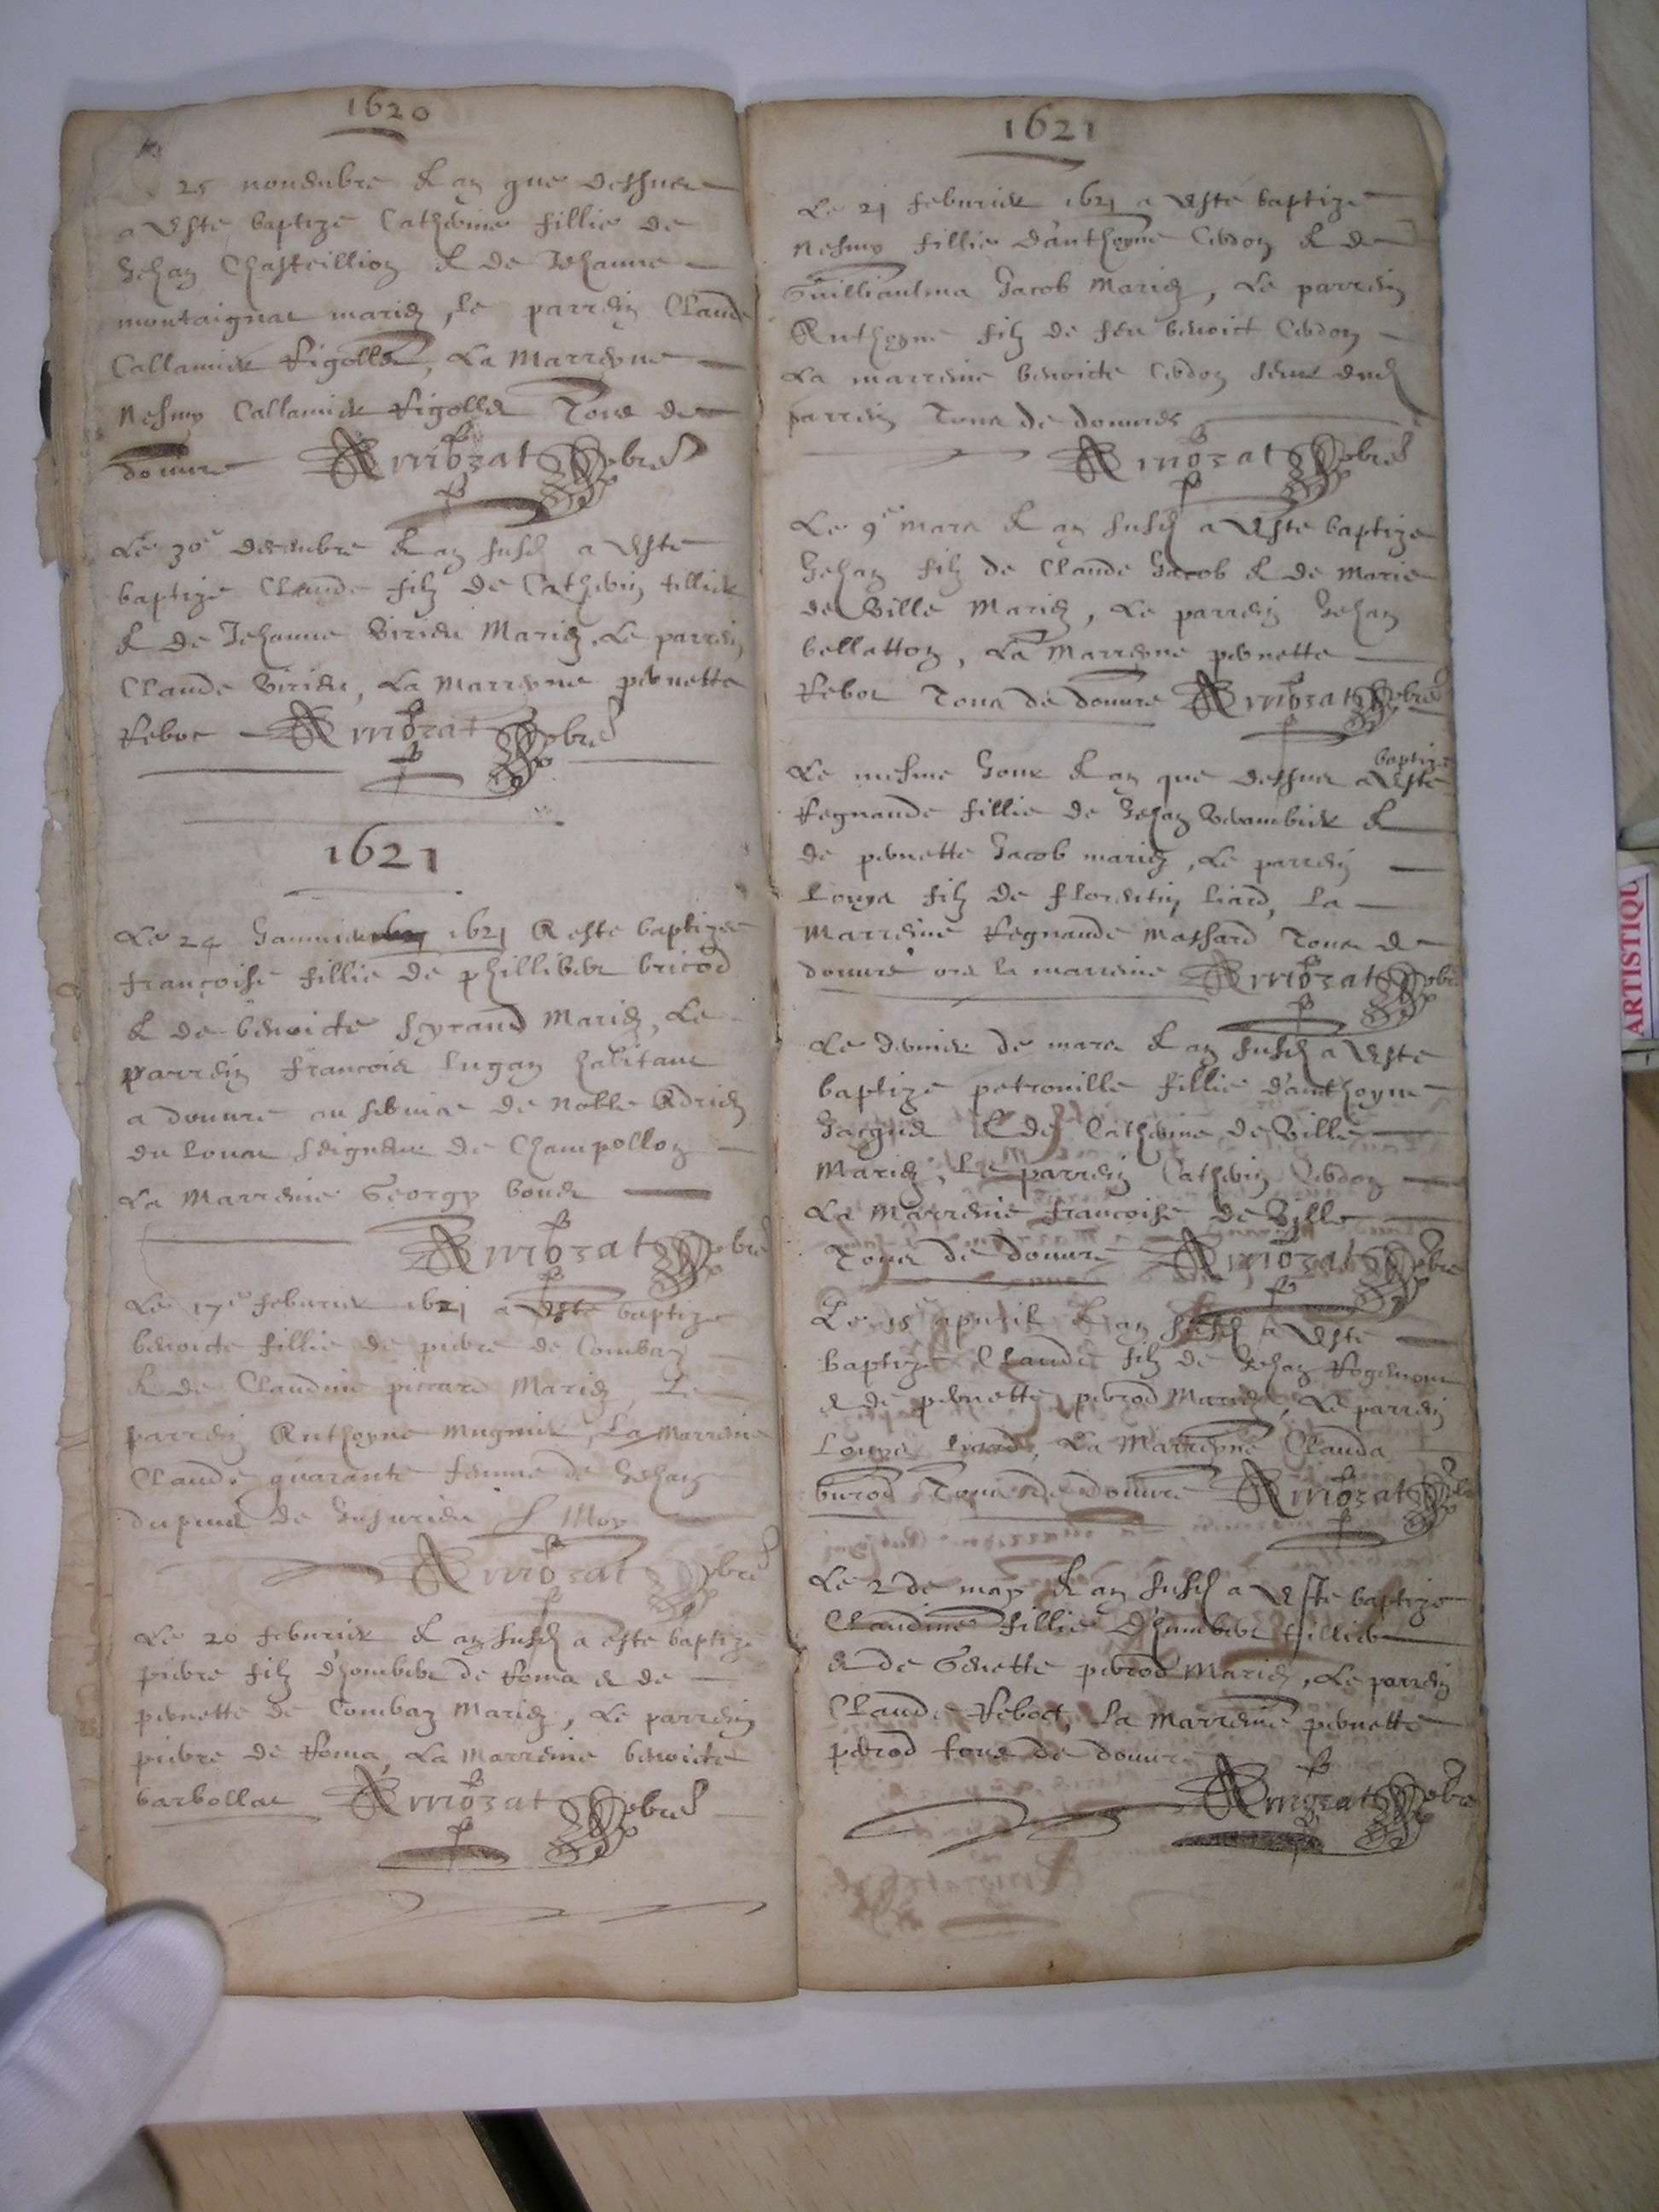 1620
25 novembre & an que dessus
a esté baptizé Catherine fillie de
Jehan Chasteillion & de Jehanne
montaignat mariez, le parrein Claude
Callamier Rigollet, La Marreyne
Nesmy Callamier Rigollet Tous de
douvre Armozat pbre
Le 30e decembre & an susd a esté
baptizé Claude filz de Catherin tillier
& de Jehanne Virieu Mariez, Le parrein
Claude Virieu, La Marreyne pernette
Rebot Armozat pbre
1621
Le 24 Janvier 1621 A esté baptizee
françoise fillie de phillibert bricod
& de benoicte Syrand Mariez, Le
parrein francois lugan habitant
a douvre au service de Noble Adrien
du Louat Seigneur de Champollon
La Marreine Georgy bouer
Armozat pbre
Le 17e febvrier 1621 a esté baptizé
benoicte fillie de pierre de Comban
& de Claudine piccard Mariez Le
parrein Anthoyne Mugnier, La Marreine
Claude quarante femme de Jehan
dupuis de Jujurieu & Moy
Armozat pbre
Le 20 febvrier & an susd a esté baptizé
pierre filz d'hombert de Roma & de
pernette de Comban Mariez, Le parrein
pierre de Roma, La Marreine benoicte
barbollat Armozat pbre
1621
Le 21 febvrier 1621 a esté baptizé
Nesmy fillie d'anthoyne Cerdon & de
Guilliaulma Jacob Mariez, Le parrein
Anthoyne filz de feu benoict Cerdon
La marreine benoicte Cerdon seur dud
parrein Tous de douvres
Armozat pbre
Le 9e mars & an susd a esté baptizé
Jehan filz de Claude Jacob & de Marie
de Ville Mariez, Le parrein Jehan
bellatton, La Marreyne pernette
Rebot Tous de douvre Armozat pbre
baptizé
Le mesme Jour & an que dessus a esté
Regnaude fillie de Jehan &
de pernette Jacob mariez, Le parrein
Louys filz de florentin liard, La
Marreine Regnaude Massard Tous de
douvre ors la marreine Armozat pbre
Le dernier de mars & an susd a esté
baptizé petronille fillie d'anthoyne
Jacquet & de Catherine de Ville
Mariez, Le parrein Catherin Cerdon
La Marreine françoise de Ville
Tous de douvre Armozat pbre
Le 18 apvril & an susd a esté
baptizé Claude filz de Jehan
& de pernette perrod Mariez, Le parrein
Louys liard, La Marreyne Clauda
burod Tous de douvre Armozat pbre
Le 2 de may & an susd a esté baptizé
Claudine fillie d'humbert tillier
& de Genette perrod Mariez, Le parrein
Claude Rebot, La Marreine pernette
perrod tous de douvre
Armozat pbre